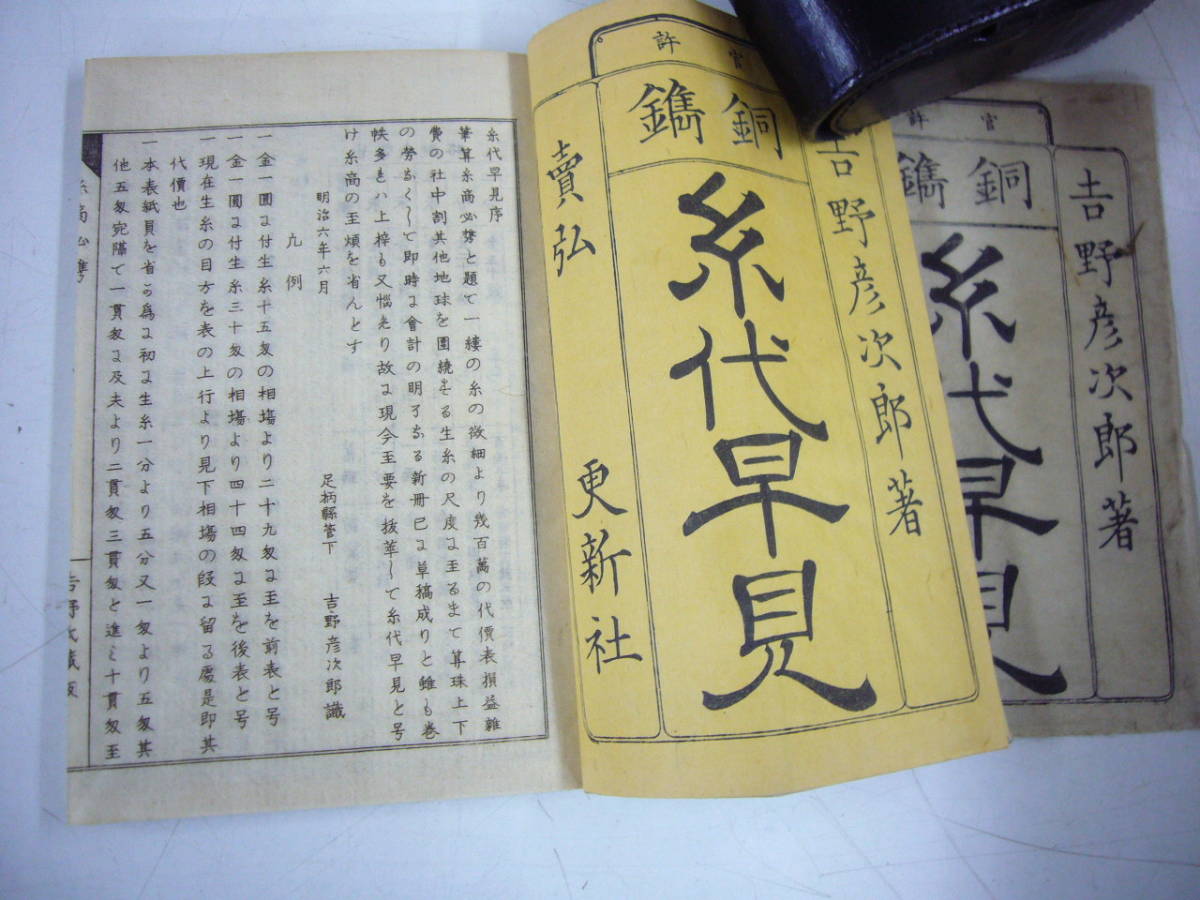 官許
吉野彦次郎著
銅鐫
糸代早見
官許
吉野彦次郎著
銅鐫
糸代早見
賣弘
更新社
糸代早見序
筆算糸商必㔟と題て一縷の糸の微細より幾百萬の代價表損益雜
費の社中割其他地球を圍繞せる生糸の尺度に至るまて算珠上下
の勞なくして即時に會計の明了なる新冊已に草稿成りと雖も巻
帙多きハ上梓も又惱めり故に現今至要を抜萃して糸代早見と号
け糸商の至煩を省んとす
明治六年六月
足柄縣管下 吉野彦次郎識
凢例
一金一圓に付生糸十五匁の相塲より二十九匁に至を前表と号
一金一圓に付生糸三十匁の相塲より四十四匁に至を後表と号
一現在生糸の目方を表の上行より見下相塲の段に留る處是即其
代價也
一本表紙員を省る爲に初に生糸一分より五分又一匁より五匁其
他五匁宛隔て一貫匁に及夫より二貫匁三貫匁と進ミ十貫匁至
糸商必携
吉野氏藏版